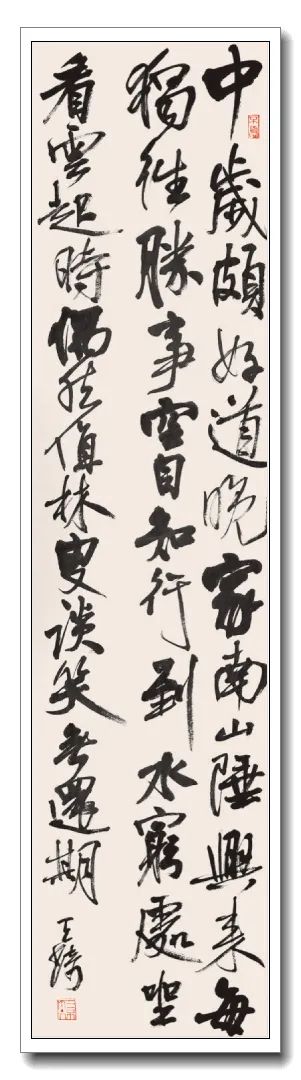 中歲頗好道晚家南山陲興來每
獨往勝事空自知行到水窮處坐
看雲起時偶然值林叟談笑無還期